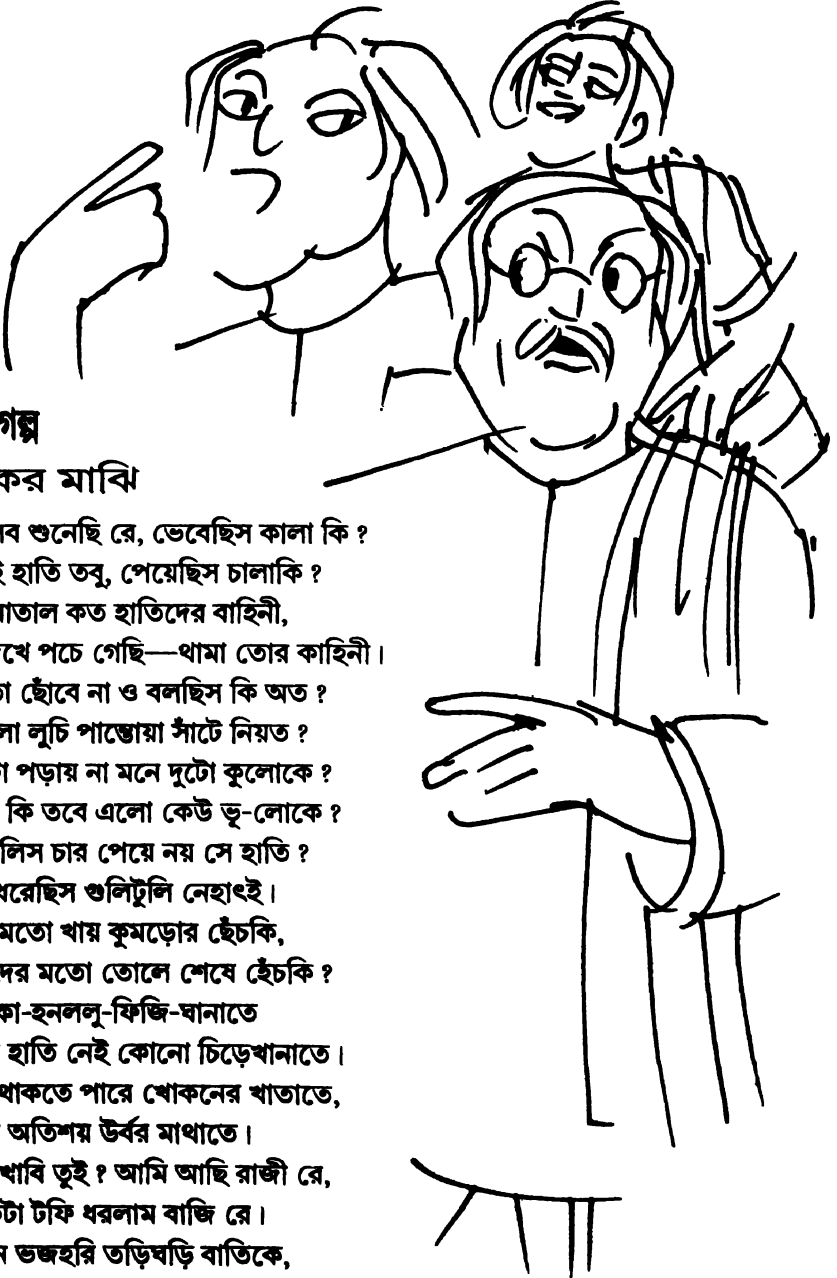 গল্প
মাঝি
শুনেছি রে, ভেবেছিস কালা কি ?
হাতি তবু, পেয়েছিস চালাকি ?
কত হাতিদের বাহিনী,
পচে গেছি—থামা তোর কাহিনী।
ছোঁবে না ও বলছিস কি অত ?
লুচি পান্তোয়া সাঁটে নিয়ত ?
পড়ায় না মনে দুটো কুলোকে ?
কি তবে এলো কেউ ভূ-লোকে ?
চার পেয়ে নয় সে হাতি ?
গুলিটুলি নেহাৎই।
মতো খায় কুমড়োর ছেঁচকি,
মতো তোলে শেষে হেঁচকি ?
হনললু-ফিজি-ঘানাতে
হাতি নেই কোনো চিড়েখানাতে।
থাকতে পারে খোকনের খাতাতে,
অতিশয় উর্বর মাথাতে।
তুই ? আমি আছি রাজী রে,
টফি ধরলাম বাজি রে।
ভজহরি তড়িঘড়ি বাতিকে,